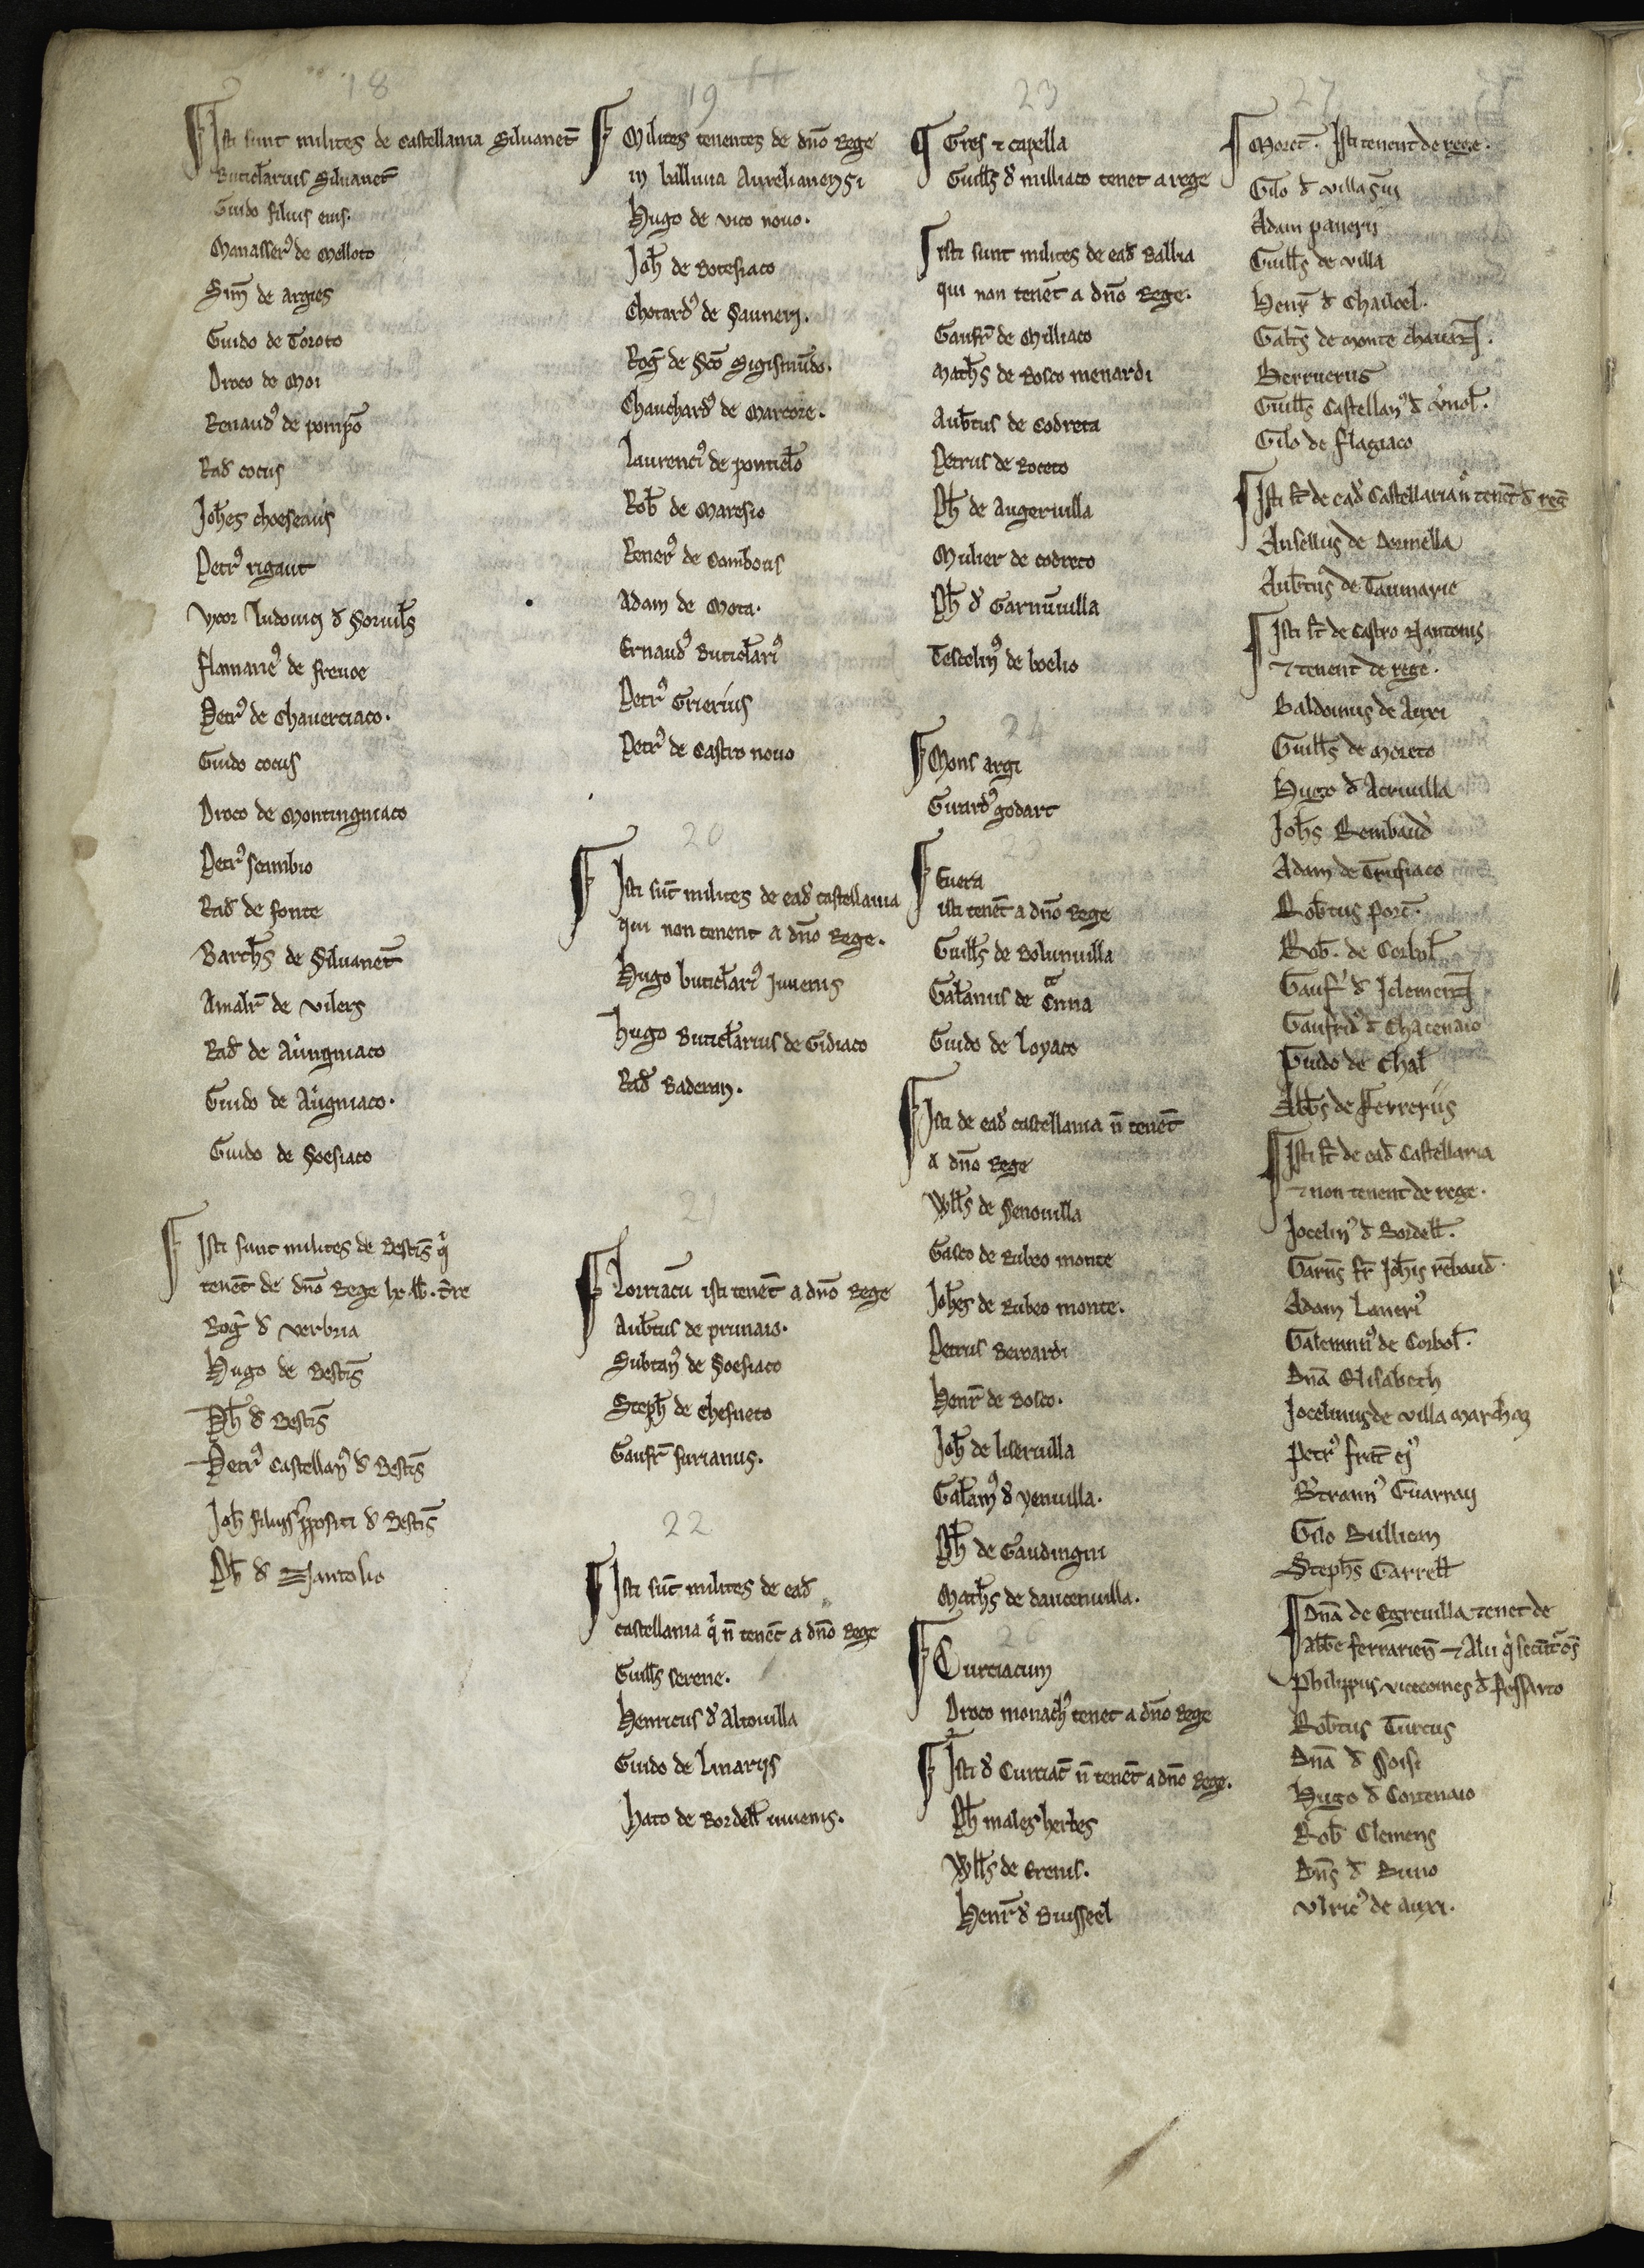 18
Isti sunt milites de castellania Siluanet̄
Buticl̄arius Siluanet̄
Guido filius eius.
Manasser᾽ de Melloto
Sim̄ de argies
Guido de Toroto
Droco de Moi
Renaud᾽ de pompō
Rad̄ cocus
Joh̄es choeseaus
Petr᾽ rigaut
Vxor ludouici d̄ Soruil̄s
flamaric᾽ de freuoe
Petr᾽ de Chauerciaco.
Guido cocus
Droco de Montingniaco
Petr᾽ scambio
Rad̄ de fonte
Barth̄s de Siluanet̄
Amalr̄ de vilers
Rad̄ de Aungniaco
Guido de Augniaco.
Guido de Soesiaco
Isti sunt milites de Bestis̄ q̇
tenet̄ de dn̄o Rege lx. lib̄. t̄re
Roḡ d̄ verbria
Hugo de Bestis̄
Ph̄ d̄ Bestis̄
Petr᾽ Castellan᾽ d̄ Bestis̄
Joh̄ filius p̄positi d̄ Bestis̄
Ph̄ d̄ Nantolio
19
Milites tenentes de dn̄o Rege
in balliuia Aurelianensi
Hugo de vico nouo.
Joh̄ de Rotesiaco
Chotard᾽ de Sauneri.
Roḡ de Sc̄o Sigismūdo.
Chauchard᾽ de Marcore.
Laurenci᾽ de ponticl̄o
Rob̄ de Maresio
Rener᾽ de Cambous
Adam de Mota.
Ernaud᾽ Buticl̄ari᾽
Petr᾽ Grierius
Petr᾽ de Castro nouo
20
Isti sūt milites de ead̄ castellania
qui non tenent a dn̄o Rege.
Hugo buticl̄ari᾽ Juuenis
Hugo Buticl̄arius de Gidiaco
Rad̄ Baderan.
21
Lorriacū isti tenet̄ a dn̄o Rege
Aub̄tus de prunaio.
Subtan᾽ de Soesiaco
Steph̄ de Chesneto
Gaufr̄ surianus.
22
Isti sūt milites de ead̄
castellania q̇ n̄ tenet̄ a dn̄o Rege
Guill̄s serene.
Henricus d̄ Altouilla
Guido de linariis
Hato de Bordell̄ iuuenis.
23
Gres ⁊ capella
Guill̄s d̄ milliaco tenet a rege
isti sunt milites de ead̄ Ballia
qui non tenet̄ a dn̄o Rege.
Gaufr̄ de Milliaco
Math̄s de Bosco menardi
Aub̄tus de Codreta
Petrus de Roceto
Ph̄ de Augeriuilla
Mulier de codreto
Ph̄ d̄ Garnūuilla
Tescelin᾽ de boelio
24
Mons argi
Girard᾽ godart
25
Euera
isti tenet̄ a dn̄o Rege
Guill̄s de Bolunuilla
Gal̄anus de Cnna
Guido de loyaco
Isti de ead̄ castellania n̄ tenet̄
a dn̄o Rege
Will̄s de Senouilla
Galco de Rubeo monte
Joh̄es de Rubeo monte.
Petrus Berardi
Henr̄ de Bosco.
Joh̄ de liueruilla
Gal̄am᾽ d̄ yenuilla.
Ph̄ de Gaudingni
Math̄s de daucenuilla.
26
Curciacum
Droco monach᾽ tenet a dn̄o Rege
Isti d̄ Curciac̄ n̄ tenet̄ a dn̄o Rege.
Ph̄ males herbes
Will̄s de Erenis.
Henr̄ d̄ Buisseel
27
Moret̄. Isti tenent de rege.
Gilo d̄ villasui
Adam paneri
Guill̄s de villa
Henr̄ d̄ Chauoel.
Galt̄s de monte chauan.
Berruerus
Guill̄s Castellan᾽ d̄ v̇nol̄.
Gilo de flagiaco
Isti st̄ de ead̄ Castellaria n̄ tenet̄ d̄ reḡ
Ansellus de Dormella
Aub̄tus de Taumarie
Isti st̄ de Castro Nantonis
⁊ tenent de rege.
Baldoinus de Auxi
Guill̄s de moreto
Hugo d̄ Acriuilla
Joh̄s Rembaud̄
Adam de Trusiaco
Rob̄tus port̄.
Rob̄. de Corbol̄
Gauf᾽ d̄ Iclemen
Gaufrid᾽ d̄ Chacenaio
Guido de Chal̄
Abb̄s de Ferreriis
Isti st̄ de ead̄ Castellaria
⁊ non tenent de rege.
Jocelin᾽ d̄ Bordell̄.
Garn̄s fr̄ Joh̄is rēbaud̄.
Adam Laneri᾽
Galerann᾽ de Corbol̄.
Dn̄a Elisabeth
Jocelinus de villa marchaz
Petr᾽ frat̄ ei᾽
B̄trann᾽ Guarrai
Gilo Bulliem
Steph̄s Carrell̄
Dn̄a de Egreuilla tenet de
abb̄e ferrarien̄ ⁊ Alii q̇ secūt᾽ os̄
Philippus vicecomes d̄ fessarto
Rob̄tus Turcus
Dn̄a d̄ Soisi
Hugo d̄ Cortenaio
Rob̄ Clemens
Dn̄s d̄ Buno
Vlric᾽ de auxi.